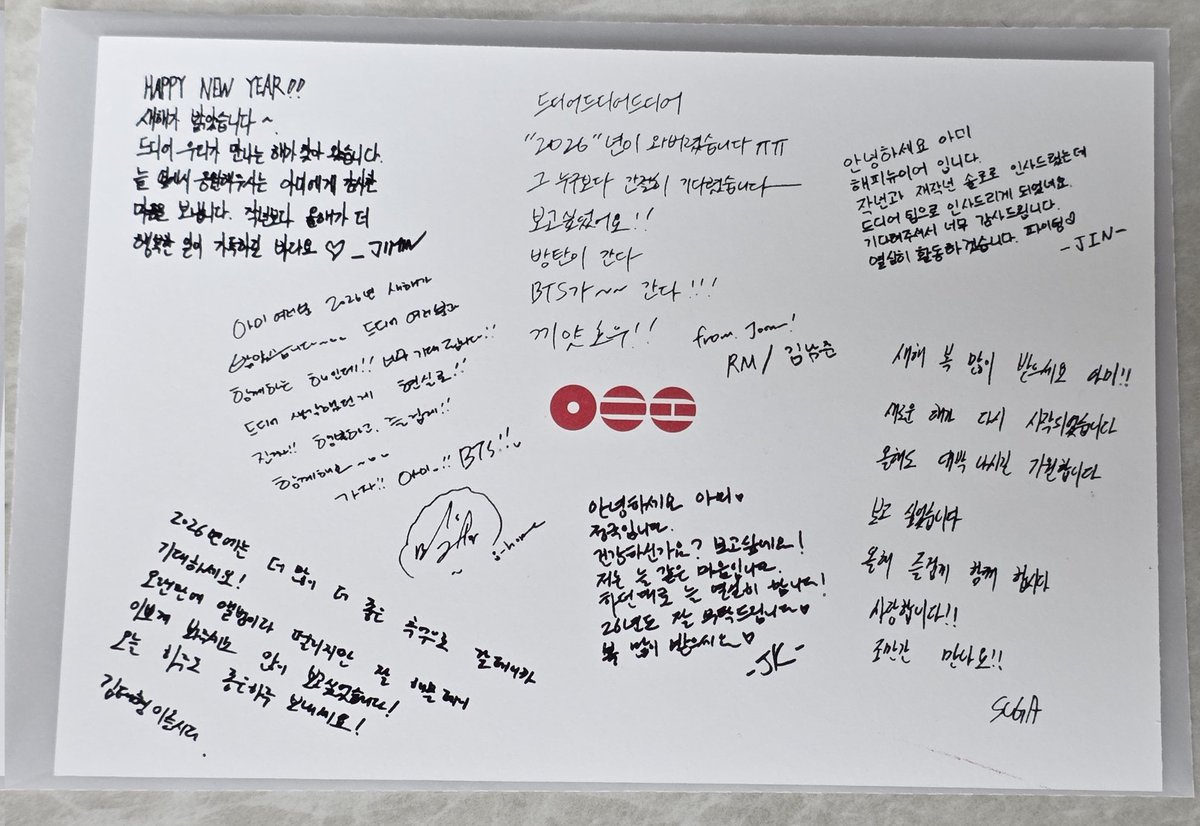 HAPPY NEW YEAR!!
새해가 밝았습니다~
드디어 우리가 만나는 해가 찾아 왔습니다.
늘 옆에서 응원해주시는 아미에게 감사한
마음을 보냅니다. 작년보다 올해가 더
행복한 일이 가득하길 바라요♡ -JIMIN
드디어드디어드디어
"2026"년이 와버렸습니다ㅠㅠ
그 누구보다 간절히 기다렸습니다
보고싶었어요!!
방탄이 간다
BTS가~~ 간다!!!
끼얏호우!!
from. Joon!
RM / 김남준
안녕하세요 아미
해피뉴이어 입니다.
작년과 재작년 솔로로 인사드렸는데
드디어 팀으로 인사드리게 되었네요.
기다려주셔서 너무 감사드립니다.
열심히 활동하겠습니다. 파이팅♡
-JIN-
아미 여러분 2026년 새해가
밝았습니다~~~ 드디어 여러분과
함께하는 해인데!! 너무 기대됩니다!!
드디어 생각했던게 현실로!!
진짜!! 행복하고, 즐겁게!!
함께해요~~~
가자!! 아미~!! BTS!!
j-hope
새해 복 많이 받으세요 아미!!
새로운 해가 다시 시작되었습니다
올해도 대박 나시길 기원합니다
보고 싶었습니다
올해 즐겁게 함께 합시다
사랑합니다!!
조만간 만나요!!
SUGA
2026년에는 더 많이 더 좋은 추억으로 갈테니까
기대하세요!
오랜만에 앨범이라 떨리지만 잘 해볼테니
이쁘게 봐주시요 많이 보고싶었습니다!
오늘 하루도 좋은하루 보내세요!
김태형 이올시다.
안녕하세요 아미♡
정국입니다.
건강하신가요? 보고싶네요!
저는 늘 같은 마음입니다.
하던대로 늘 열심히 합니다!
26년도 잘 부탁드립니다♡
복 많이 받으시오♡
-JK-